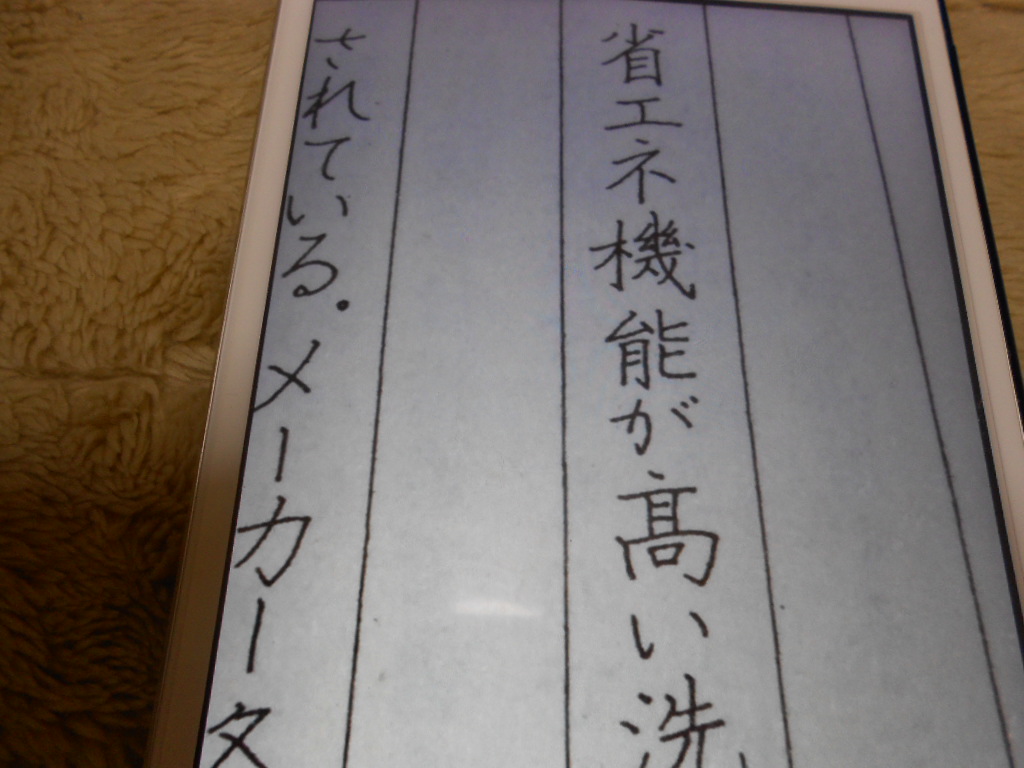 省エネ機能が髙い洗
されている。メーカータ